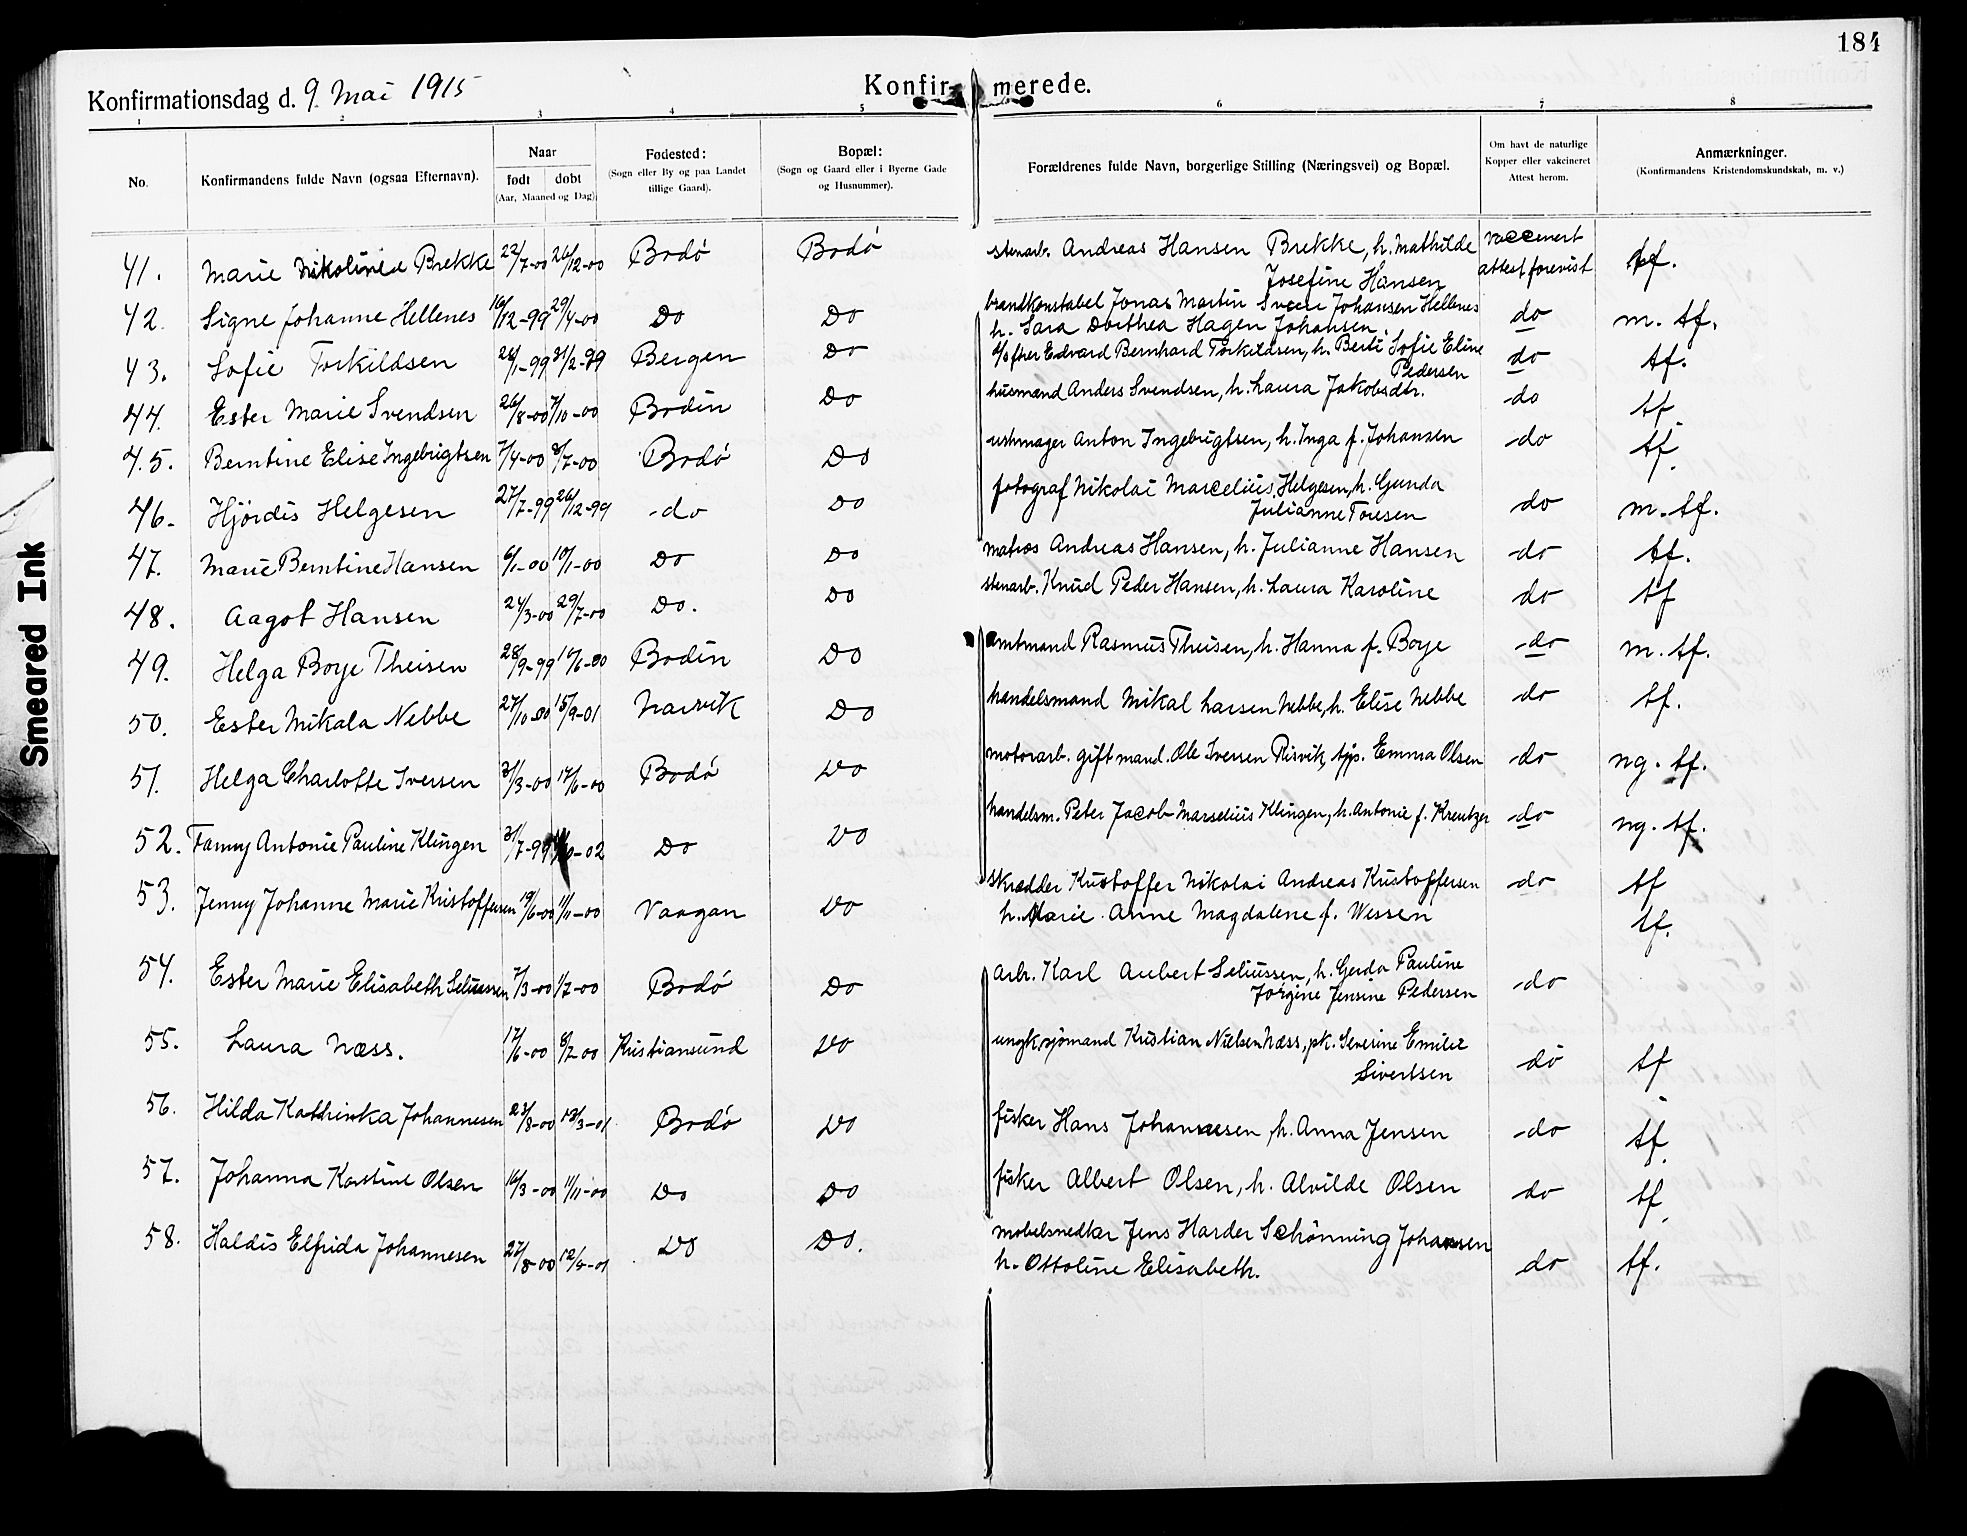 184
Konfirmationsdag d. 9. Mai 1915 Konfirmerede.
1 2 3 4 5 6 7 8
No. Konfirmandens fulde Navn (ogsaa Efternavn). Naar født døbt (Aar, Maaned og Dag). Fødested: (Sogn eller By og paa Landet tillige Gaard). Bopæl: (Sogn og Gaard eller i Byerne Gade og Husnummer). Forældrenes fulde Navn, borgerlige Stilling (Næringsvei) og Bopæl. Om havt de naturlige Kopper eller vakcineret Attest herom. Anmærkninger. (Konfirmandens Kristendomskundskab, m. v.)
41. Marie Nikoline Brekke 22/7-00 26/12-00 Bodø Bodø stenarb. Andreas Hansen Brekke, h. Mathilde attest forevist tf.
Josefine Hansen
42. Signe Johanne Hellenes 16/12-99 29/4-00 Do Do brandkonstabel Jonas Martin Johansen Hellenes do m. tf.
h. Sara Dorthea Hagen Johansen.
43. Sofie Torkildsen Bergen Do Edvard Bernhard Torkildsen, h. Sofie Eline do tf.
Pedersen
44. Ester Marie Svendsen 26/8-00 7/10-00 Bodin Do husmand Anders Svendsen, h. Laura Jakobsdtr. do tf
45. Berntine Elise Ingebrigtsen 7/4-00 8/7-00 Bodø Do urhmager Anton Ingebrigtsen, h. Inga f. Johansen do tf.
46. Hjördis Helgesen 27/7-99 26/12-99 do Do fotograf Nikolai Marcelius Helgesen, h. Gunda do m. tf.
Julianne Toresen
47. Marie Berntine Hansen 6/1-00 Do Do matros Andreas Hansen, h. Julianne Hansen do tf.
48. Aagot Hansen 24/3-00 29/7-00 Do. Do stenarb. Knud Peder Hansen, h. Laura Karoline do tf
49. Helga Boye Theisen 28/9-99 Bodin Do amtmand Rasmus Theisen, h. Hanna f. Boye do m. tf.
50. Ester Mikala Nebbe 27/10-00 15/9-01 Narvik Do handelsmand Mikal Larsen Nebbe, h. Elise Nebbe do tf.
51. Helga Charlotte Iversen 31/3-00 17/6-00 Bodø Do motorarb. gift mand. Ole Iversen Risvik, Emma Olsen do ng. tf.
52. Fanny Antonie Pauline Klingen 31/7-99 Do Do handelsm. Peter Jacob Marselius Klingen, h. Antonie f. Kreutzer do ng. tf.
53. Jenny Johanne Marie Kristoffersen 19/6-00 11/11-00 Vaagan Do skrædder Kristoffer Nikolai Andreas Kristoffersen do tf
h. Marie Anne Magdalene f. Wessen tf.
54. Ester Marie Elisabeth Seliussen 7/3-00 1/7-00 Bodø Do arb. Karl Aubert Seliussen, h. Gerda Pauline do
Jørgine Jensine Pedersen
55. Laura Næss. 17/6-00 8/7-00 Kristiansund Do ungk. sjømand Kristian Nielsen Næss, pk. Severine Emilie do tf
Sivertsen
56. Hilda Kathinka Johannesen 23/8-00 Bodø Do fisker Hans Johannesen, h. Anna Jensen do tf.
57. Johanna Kastine Olsen 16/3-00 11/11-00 Do Do fisker Albert Olsen, h. Alvilde Olsen do tf.
58. Haldis Elfrida Johannesen 27/8-00 Do Do. møbelsnedker Jens Harder Schönning Johansen
h. Ottoline Elisabeth. do tf.
Smeared Ink